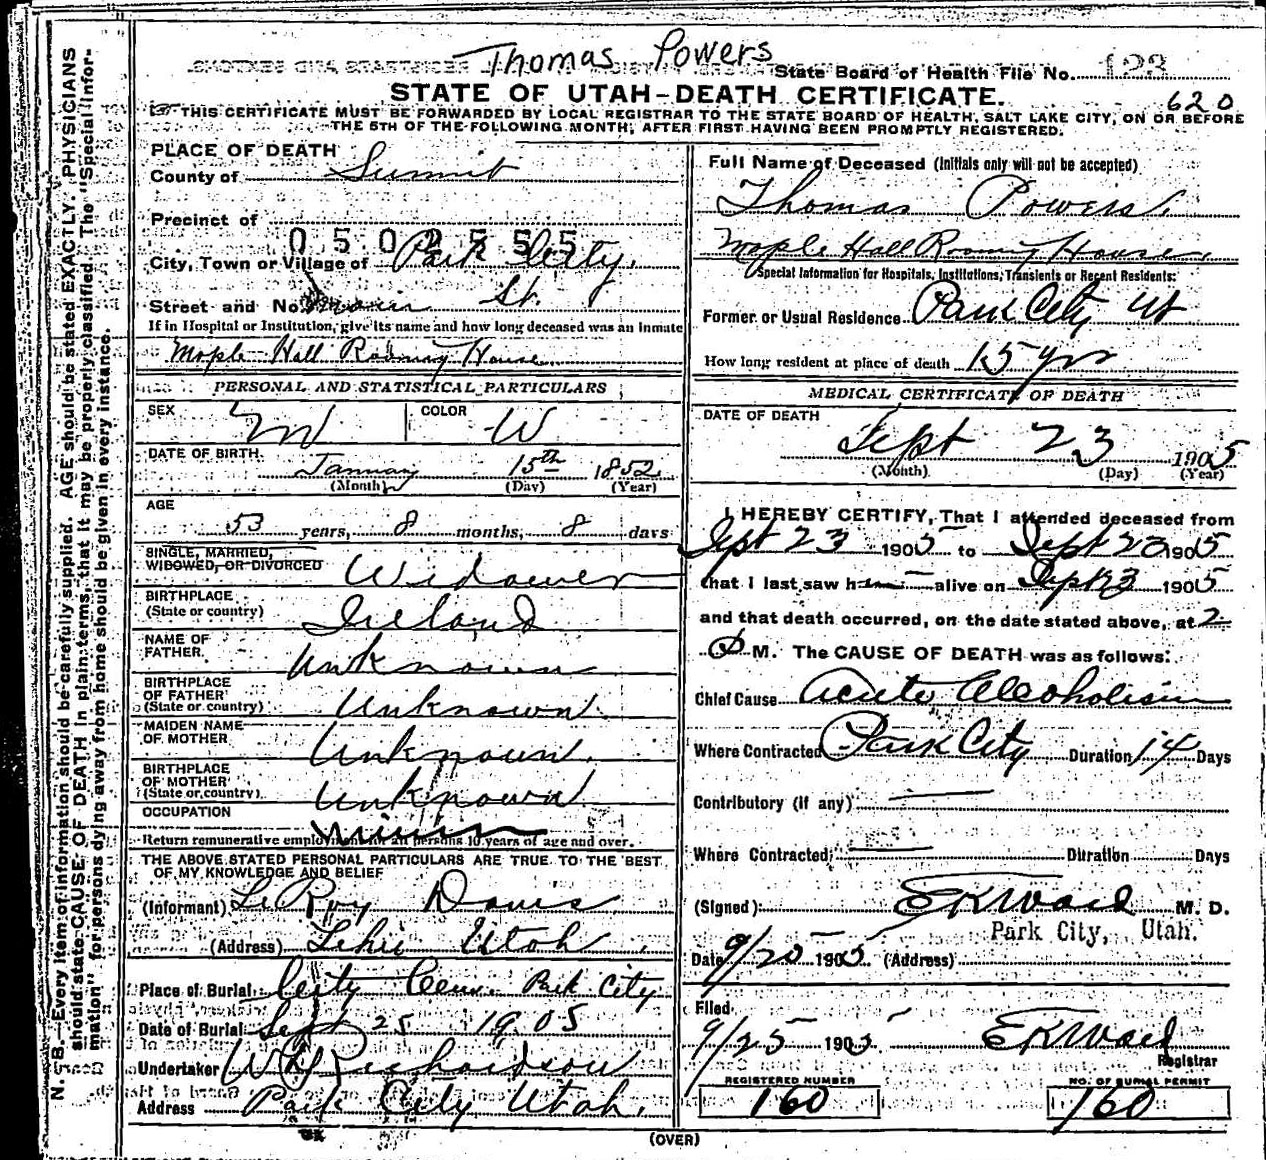 Thomas Powers
State Board of Health File No. 123
STATE OF UTAH-DEATH CERTIFICATE.
620
THIS CERTIFICATE MUST BE FORWARDED BY LOCAL REGISTRAR TO THE STATE BOARD OF HEALTH, SALT LAKE CITY, ON OR BEFORE
THE 5TH OF THE FOLLOWING MONTH, AFTER FIRST HAVING BEEN PROMPTLY REGISTERED.
N. B.—Every item of information should be carefully supplied. AGE should be stated EXACTLY. PHYSICIANS
should state CAUSE OF DEATH in plain terms, that it may be properly classified. The "Special Infor-
mation" for persons dying away from home should be given in every instance.
PLACE OF DEATH
County of Summit
Precinct of
0502555
City, Town or Village of Park City.
Street and No. Main St.
If in Hospital or Institution, give its name and how long deceased was an inmate
Maple Hall Rooming House
PERSONAL AND STATISTICAL PARTICULARS
SEX M COLOR W
DATE OF BIRTH. January 15th 1852
(Month) (Day) (Year)
AGE
53 years, 8 months, 8 days
SINGLE, MARRIED,
WIDOWED, OR DIVORCED Widower
BIRTHPLACE
(State or country) Ireland
NAME OF
FATHER. Unknown
BIRTHPLACE
OF FATHER
(State or country) Unknown.
MAIDEN NAME
OF MOTHER Unknown.
BIRTHPLACE
OF MOTHER
(State or country) Unknown
OCCUPATION
Return remunerative employment for all persons 10 years of age and over.
THE ABOVE STATED PERSONAL PARTICULARS ARE TRUE TO THE BEST
OF MY KNOWLEDGE AND BELIEF
(Informant) LeRoy Davis
(Address) Lehi Utah.
Place of Burial City Cem. Park City
Date of Burial Sept 25 1905
Undertaker Richardson
Address Park City Utah.
Full Name of Deceased (Initials only will not be accepted)
Thomas Powers.
Maple Hall Rooming House.
Special Information for Hospitals, Institutions, Transients or Recent Residents:
Former or Usual Residence Park City Ut
How long resident at place of death 15 yrs
MEDICAL CERTIFICATE OF DEATH
DATE OF DEATH
Sept 23 1905
(Month) (Day) (Year)
I HEREBY CERTIFY, That I attended deceased from
Sept 23 1905 to Sept 23 1905
that I last saw h alive on Sept 23 1905
and that death occurred, on the date stated above, at 2
P. M. The CAUSE OF DEATH was as follows:
Chief Cause Acute Alcoholism
Where Contracted Park City Duration 14 Days
Contributory (if any)
Where Contracted Duration Days
(Signed) M. D.
Park City, Utah.
Date 9/25 1905 (Address)
Filed
9/25 1905
Registrar
REGISTERED NUMBER
160
NO. OF BURIAL PERMIT
160
(OVER)